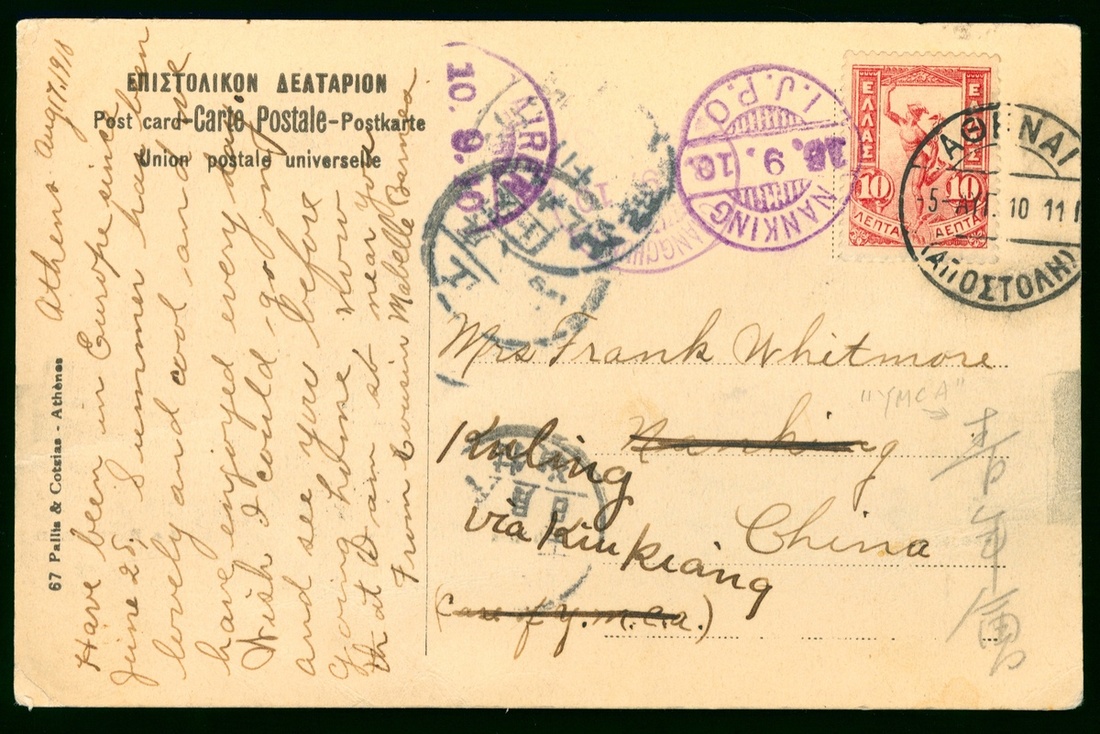 ΕΠΙΣΤΟΛΙΚΟΝ ΔΕΛΤΑΡΙΟΝ
Post card-Carte Postale-Postkarte
Union postale universelle
67 Pallis & Cotzias - Athènes
Athens Aug 17, 1910
Have been in Europe since
June 25, Summer has been
lovely and cool and we
have enjoyed every day
Wish I could go on
and see you before
going home now
that I am so near you
From Cousin Mabelle Barnea
10. 9. 10
NANKING
18. 9. 10
I.J.P.O.
ΕΛΛΑΣ
ΕΛΛΑΣ
10
10
ΛΕΠΤΑ
ΛΕΠΤΑ
ΑΘΗΝΑΙ
5-ΑΥΓ. 10 11
(ΑΠΟΣΤΟΛΗ)
Mrs Frank Whitmore
"YMCA"
Nanking
Kuling
via Kiu Kiang
China
(Care of Y.M.C.A.)
青年會